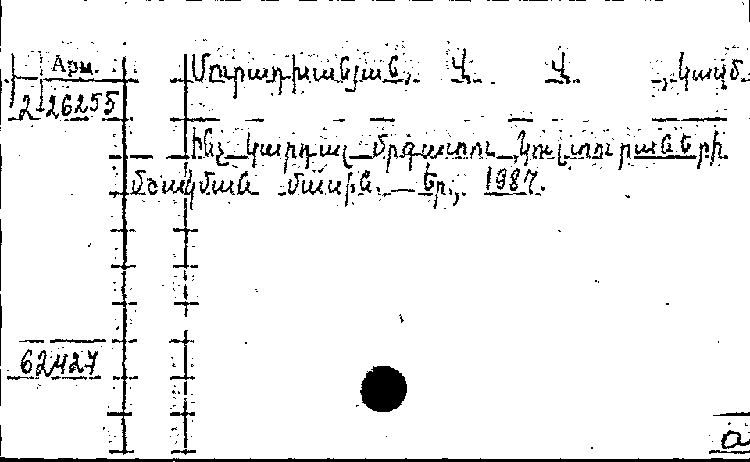 Арм. Մուրադխանյան, Վ. Վ., կազմ.
2-26255
Ինչ կարդալ մրգատու կուլտուրաների
մշակման մասին. Եր., 1987.
62427
а